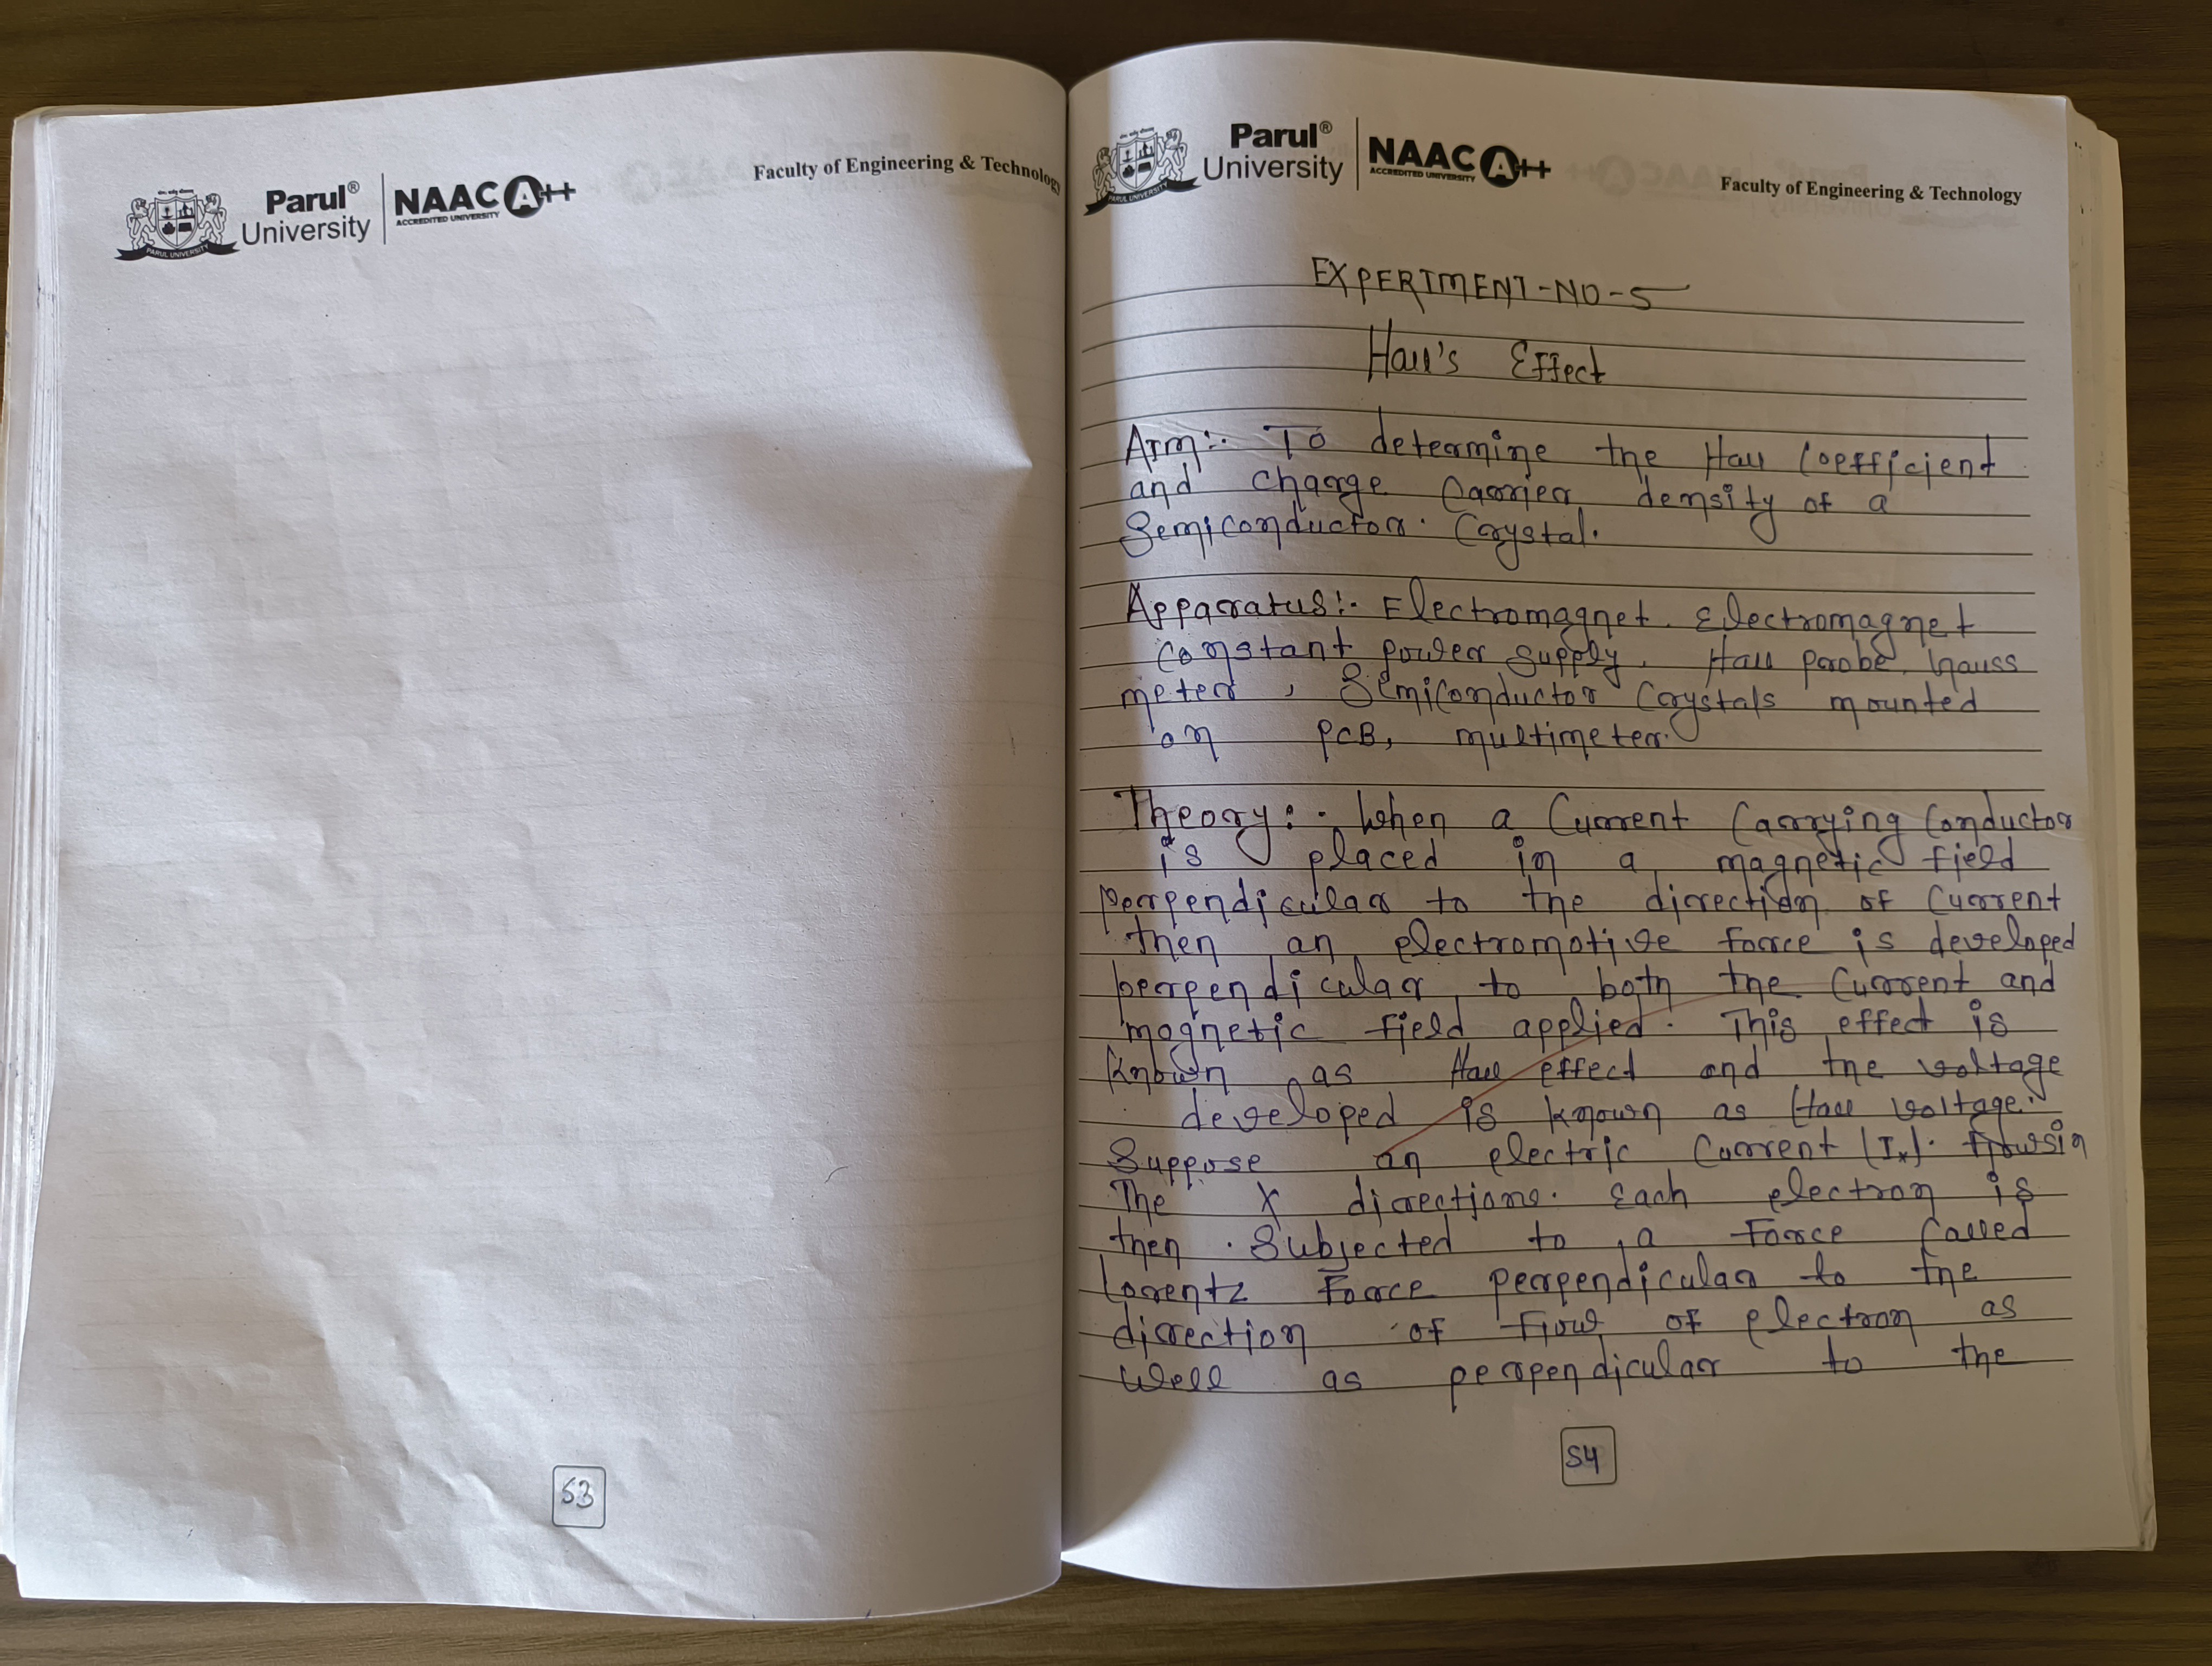 Parul® University
NAAC A++
ACCREDITED UNIVERSITY
PARUL UNIVERSITY
Faculty of Engineering & Technology
53
Parul® University
NAAC A++
ACCREDITED UNIVERSITY
PARUL UNIVERSITY
Faculty of Engineering & Technology
EXPERIMENT-NO-5
Hall's Effect
AIm:- To determine the Hall Coefficient
and charge Carrier density of a
Semiconductor. Crystal.
Apparatus:- Electromagnet. Electromagnet
constant power supply. Hall probe. Gauss
meter, Semiconductor Crystals mounted
on PCB, multimeter.
Theory:- When a Current Carrying Conductor
is placed in a magnetic field
perpendicular to the direction of Current
then an electromotive force is developed
perpendicular to both the Current and
magnetic field applied. This effect is
Known as Hall effect and the voltage
developed is known as Hall voltage.
Suppose an electric Current (Ix). flowsin
The X directions. Each electron is
then. Subjected to a Force Called
Lorentz Force perpendicular to the
direction of flow of electron as
well as perpendicular to the
54